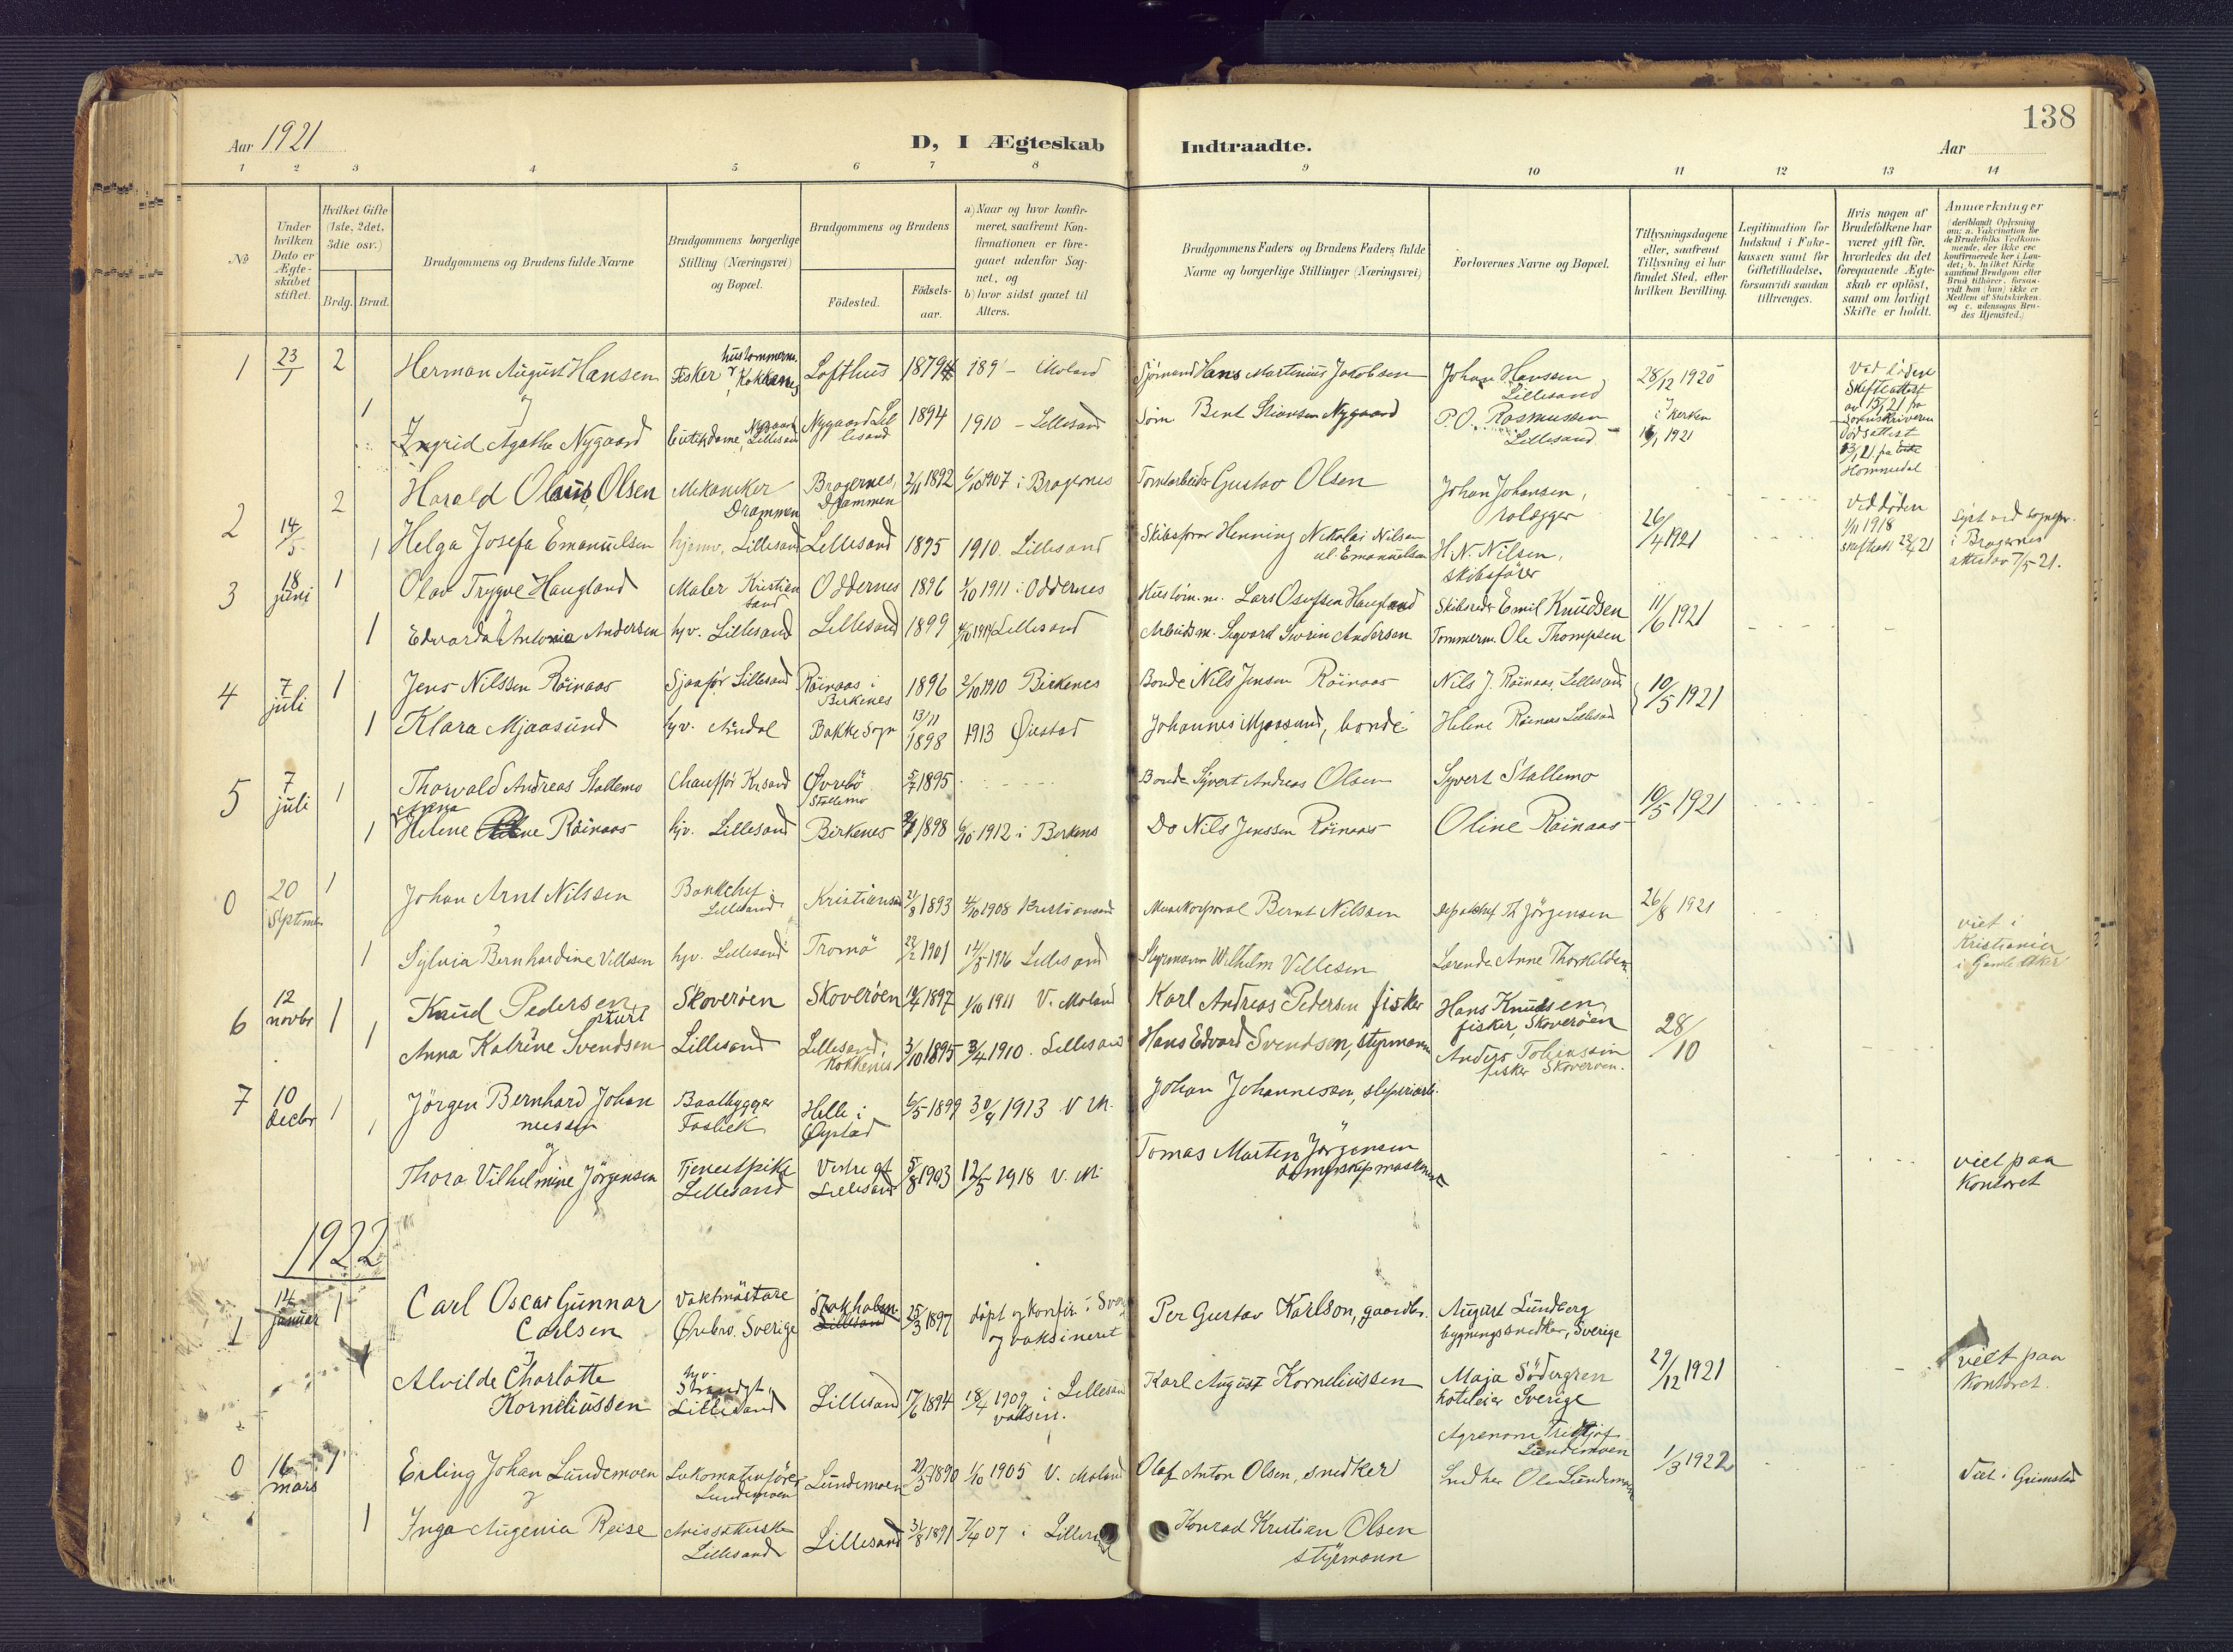 138
Aar 1921
D, I Ægteskab Indtraadte.
Aar
1 2 3 4 5 6 7 8 9 10 11 12 13 14
No
Under hvilken Dato er Ægteskabet stiftet.
Hvilket Gifte (1ste, 2det, 3die osv.)
Brdg. Brud.
Brudgommens og Brudens fulde Navne
Brudgommens borgerlige Stilling (Næringsvei) og Bopæl.
Brudgommens og Brudens
Fødested.
Fødselsaar.
a) Naar og hvor konfirmeret, saafremt Konfirmationen er foregaaet udenfor Sognet, og
b) hvor sidst gaaet til Alters.
Brudgommens Faders og Brudens Faders fulde Navne og borgerlige Stillinger (Næringsvei)
Forlovernes Navne og Bopæl.
Tillysningsdagene eller, saafremt Tillysning ei har fundet Sted, efter hvilken Bevilling.
Legitimation for Indskud i Enkekassen samt for Giftetilladelse, forsaavidt saadan tiltrænges.
Hvis nogen af Brudefolkene har været gift før, hvorledes da det foregaaende Ægteskab er opløst, samt om lovligt Skifte er holdt.
Anmærkninger
1 23/1 2 Herman August Hansen Fisker Lofthus 1879 Moland Sjømand Hans Martinius Jakobsen Johan Hanssen Lillesand 28/12 1920
1 Ingrid Agathe Nygaard Lillesand Nygaard Lillesand 1894 1910 - Lillesand Bent Stiansen Nygaard P.O. Rasmussen Lillesand 1921
2 14/5 2 Harald Olaus Olsen Mekaniker Drammen Bragernes, Drammen 2/11 1892 6/10 1907 i Bragernes Tomtarbeider Gustav Olsen Johan Johansen, rolægger 26/4 1921 Ved døden 1/11 1918
1 Helga Josefa Emanuelsen hjemv. Lillesand Lillesand 1895 1910. Lillesand Henning Nikolai Nilsen H.N. Nilsen, skibsfører
3 18 juni 1 Olav Trygve Haugland Maler Kristiansand Oddernes 1896 1/10 1911 i Oddernes Lars Osufsen Haugland Skibsreder Emil Knudsen 11/6 1921
1 Edvarda Antonie Andersen hjv. Lillesand Lillesand 1899 Lillesand Arbeidsm. Sigvard Severin Andersen Tømmerm. Ole Thompsen
4 7 juli 1 Jens Nilssen Röinaas Sjaafør Lillesand Röinaas i Birkenes 1896 2/10 1910 Birkenes Bonde Nils Jensen Röinaas Nils J. Röinaas, Lillesand 10/5 1921
1 Klara Mjaasund hjv. Arndal Bakke Sogn 13/11 1898 1913 Øiestad Johannes Mjaasund, bonde Helene Röinaas Lillesand
5 7 juli 1 Thorvald Andreas Stallemo Chauffør Krsand Øvrebö Stallemo 1895 Bonde Syvert Andreas Olsen Syvert Stallemo 10/5 1921
1 Helene Röinaas hjv. Lillesand Birkenes 1898 6/10 1912 i Birkenes Do Nils Jenssen Röinaas Oline Röinaas
0 20 September 1 Johan Arnt Nilssen Bankchef Lillesand Kristiansand 21/8 1893 4/10 1908 Kristiansand Bernt Nilssen Th Jörgensen 26/8 1921
1 Sylvia Bernhardine Villesen hjv. Lillesand Tromö 22/2 1901 14/5 1916 Lillesand Styrmann Wilhelm Villesen Lærerinde Anne Thorkildsen viet i Kristiania i Gamle Aker
6 12 novbr 1 Knud Pedersen Skoverøen Skoverøen 1897 1/10 1911 V. Moland Karl Andreas Pedersen fisker Hans Knudsen, fisker, Skoverøen 28/10
1 Anna Katrine Svendsen Lillesand Lillesand, Kokkenes 3/10 1895 3/4 1910. Lillesand Hans Edvard Svendsen, styrmann
7 10 decbr 1 Jörgen Bernhard Johannessen Baatbygger Fosbek Helle i Øystad 6/5 1899 30/9 1913 V M. Johan Johannesen, sliperiarb.
1 og Thora Vilhelmine Jörgensen Tjenestpike Lillesand Vestregt Lillesand 5/8 1903 12/5 1918 V. M. Tomas Martin Jörgensen dampskipmaskinist viet paa Kontoret
1922
1 14 januar 1 Carl Oscar Gunnar Carlsen Vaktmästare Örebro. Sverige Stokholm 25/3 1897 döpt og konfir. i Sverige og vaksineret Per Gustav Karlson, gaardbr. August Lundberg bygningssnedker, Sverige
Alvilde Charlotte Korneliussen hjv. Strandgt. Lillesand Lillesand 17/6 1894 18/4 1909 i Lillesand vaksin. Karl August Korneliussen Maja Södergren hoteleier Sverige 29/12 1921 vielt paa Kontoret.
0 16 mars 1 Erling Johan Lundemoen Lokomotivfører Lundemoen Lundemoen 1890 1/10 1905 V. Moland Olaf Anton Olsen, snedker Agronom Fridtjof Lundemoen Snedker Ole Lundemoen 1/3 1922 Viet i Grimstad
1 og Inga Augenia Reise Lillesand Lillesand 31/8 1891 7/4 07 i Lillesand Konrad Kristian Olsen styrmann